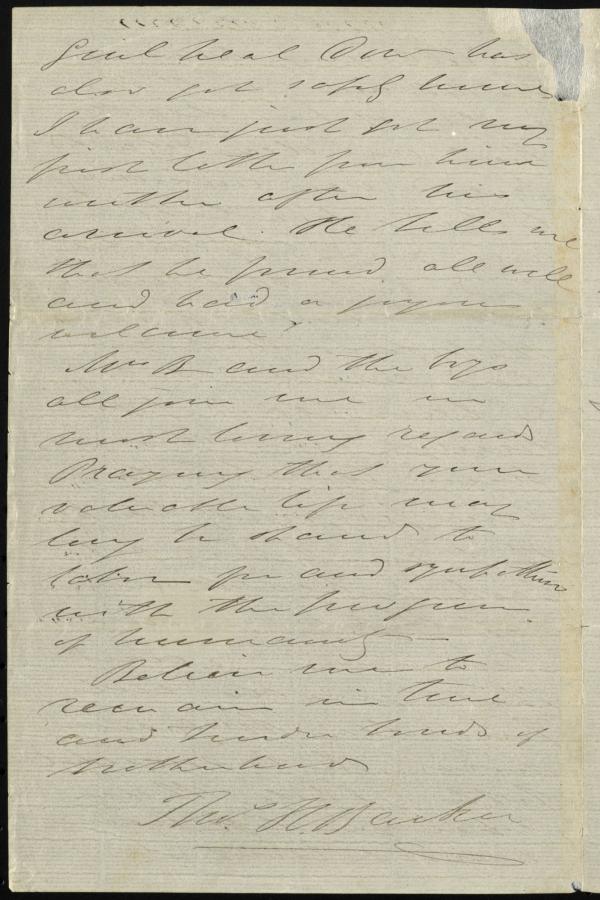 Genl Neal Dow has
also got safely home
I have just got my
first letter from him
written after his
arrival. He tells me
that he found all well
and had a joyous
welcome
Mrs B and the boys
all join me in
most loving regards
Praying that your
valuable life may
long be spared to
labor for and sympathise
with the progress
of humanity —
Believe me to
remain in true
and tender bonds of
brotherhood
Thos. H. Barker